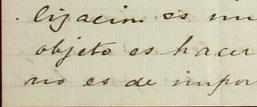 . ligacion es mu
objeto es hacer
no es de impor